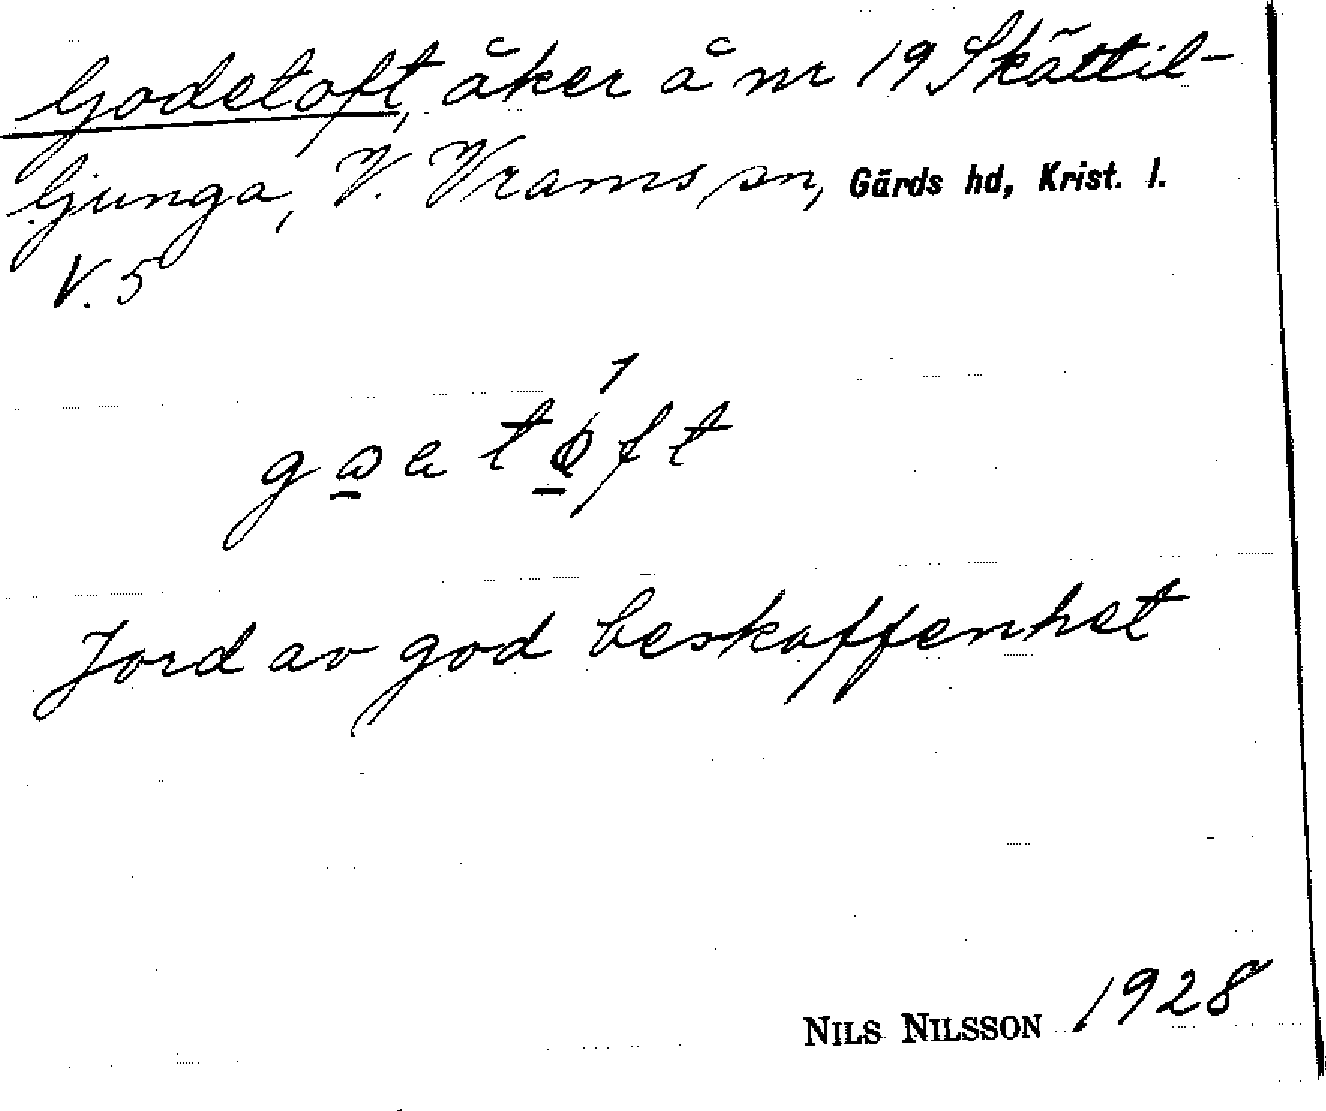 Godetoft, åker å nr 19 Skättil-
ljunga, V. Vrams sn, Gärds hd, Krist. l.
V. 5
Jord av god beskaffenhet
NILS NILSSON 1928